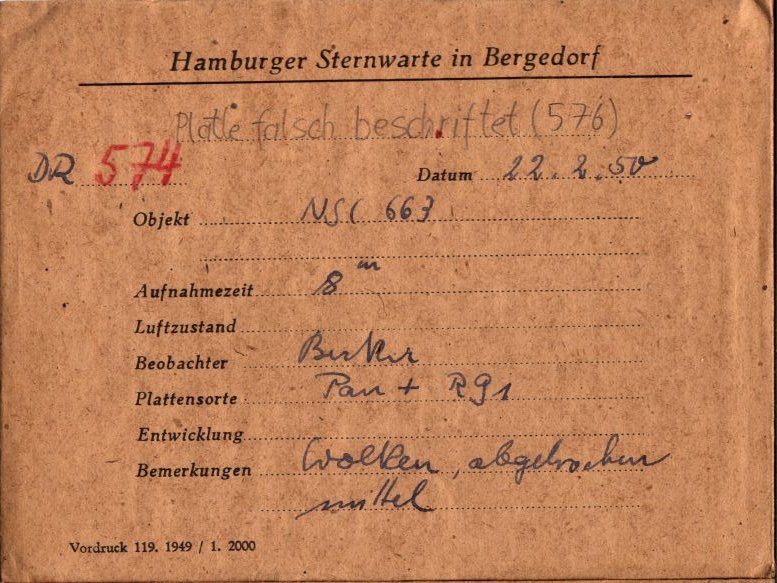 Hamburger Sternwarte in Bergedorf
Platte falsch beschriftet (576)
DR 574 Datum 22.2.50
Objekt NGC 663
Aufnahmezeit 8 m
Luftzustand
Beobachter Becker
Plattensorte Pan + RG1
Entwicklung
Bemerkungen Wolken, abgebrochen
mittel
Vordruck 119. 1949 / 1. 2000